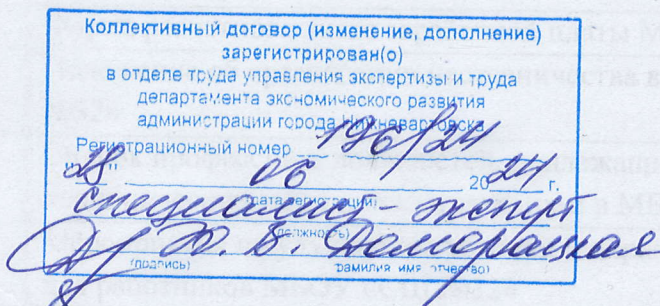 Коллективный договор (изменение, дополнение)
зарегистрирован(о)
в отделе труда управления экспертизы и труда
департамента экономического развития
администрации города Нижневартовска
Регистрационный номер 196/24
"28" 06 2024 г.
(дата регистрации)
специалист-эксперт
(должность)
Ю. В. Доморацкая
(подпись) фамилия имя отчество)